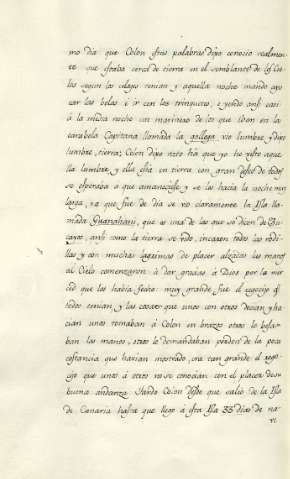 mo dia que Colon estas palabras dixo conocio realmen-
te que estaba cerca de tierra en el semblante de los Cie-
los segun los celajes tenian y aquella noche mando apo-
car las belas i ir con los trinquetes; i yendo ansi casi
á la media noche un marinero de los que iban en la
carabela Capitana llamada la gallega vio lumbre y dixo
lumbre, tierra; Colon dixo rato ha que yo he visto aque-
lla lumbre y ella está en tierra con gran deseo de todos
se esperaba a que amaneciese y se les hacia la noche muy
larga, ya que fue de dia se vio claramente la Isla lla-
mada Guanahani, que es una de las que se dicen de Bu-
cayos, ansi como la tierra se vido, incaron todos las rodi-
llas y con muchas lagrimas de placer alçadas las manos
al Cielo comenzaron á dar gracias á Dios por la mer-
ced que les habia fecho muy grande fue el regocijo q.
todos tenian, y las cosas que unos con otros decian y ha-
cian unos tomaban á Colon en brazos otros le besa-
ban las manos, otros le demandaban perdon de la poca
costancia que havian mostrado, era tan grande el rego-
cijo que unos á otros no se conocian con el placer de su
buena andanza. Tardo Colon desde que salio de la Isla
de Canaria hasta que llego á esta Isla 33 dias de na-